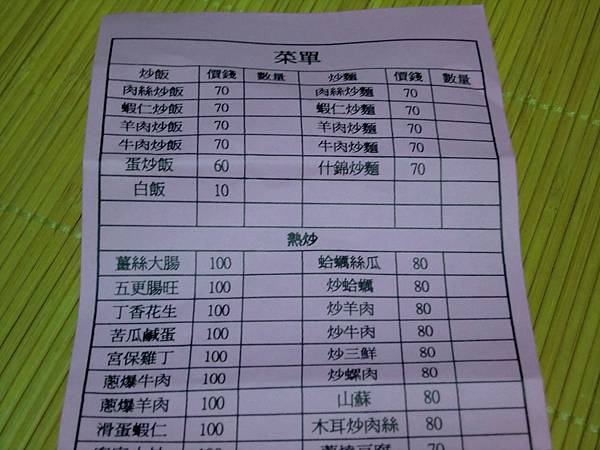 菜單
炒飯 價錢 數量 炒麵 價錢 數量
肉絲炒飯 70 肉絲炒麵 70
蝦仁炒飯 70 蝦仁炒麵 70
羊肉炒飯 70 羊肉炒麵 70
牛肉炒飯 70 牛肉炒麵 70
蛋炒飯 60 什錦炒麵 70
白飯 10
熱炒
薑絲大腸 100 蛤蠣絲瓜 80
五更腸旺 100 炒蛤蠣 80
丁香花生 100 炒羊肉 80
苦瓜鹹蛋 100 炒牛肉 80
宮保雞丁 100 炒三鮮 80
蔥爆牛肉 100 炒螺肉 80
蔥爆羊肉 100 山蘇 80
滑蛋蝦仁 100 木耳炒肉絲 80
100 豆腐 70